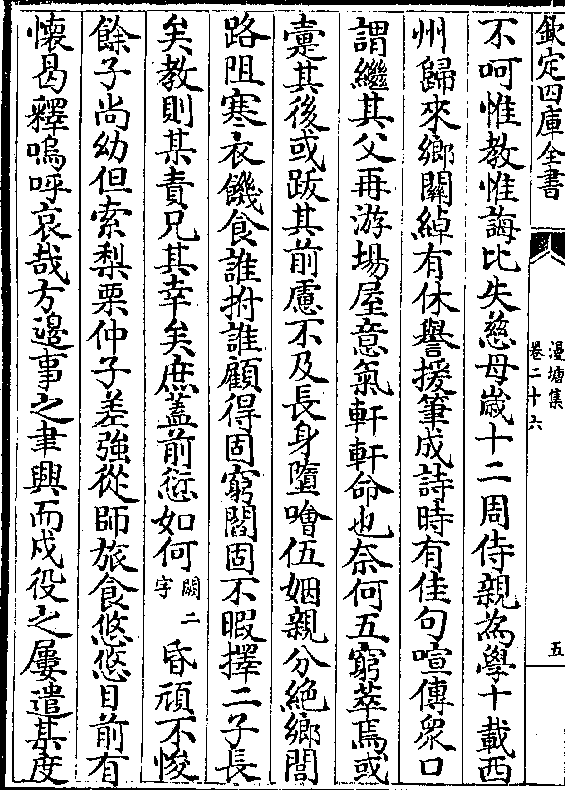 欽定四庫全書
漫塘集
卷二十六
五
不呵惟教惟誨比失慈母歲十二周侍親為學十載西
州歸來鄉關綽有休譽援筆成詩時有佳句喧傳衆口
謂繼其父再游場屋意氣軒軒命也奈何五窮萃焉或
疐其後或跋其前慮不及長身墮噲伍姻親分絶鄉閭
路阻寒衣饑食誰拊誰顧得固窮閻固不暇擇二子長
矣教則某責兄其幸矣庶蓋前愆如何闕二字昏頑不悛
餘子尚幼但索梨栗仲子差強從師旅食悠悠目前有
懷曷釋嗚呼哀哉方邊事之聿興而戍役之屢遣其度